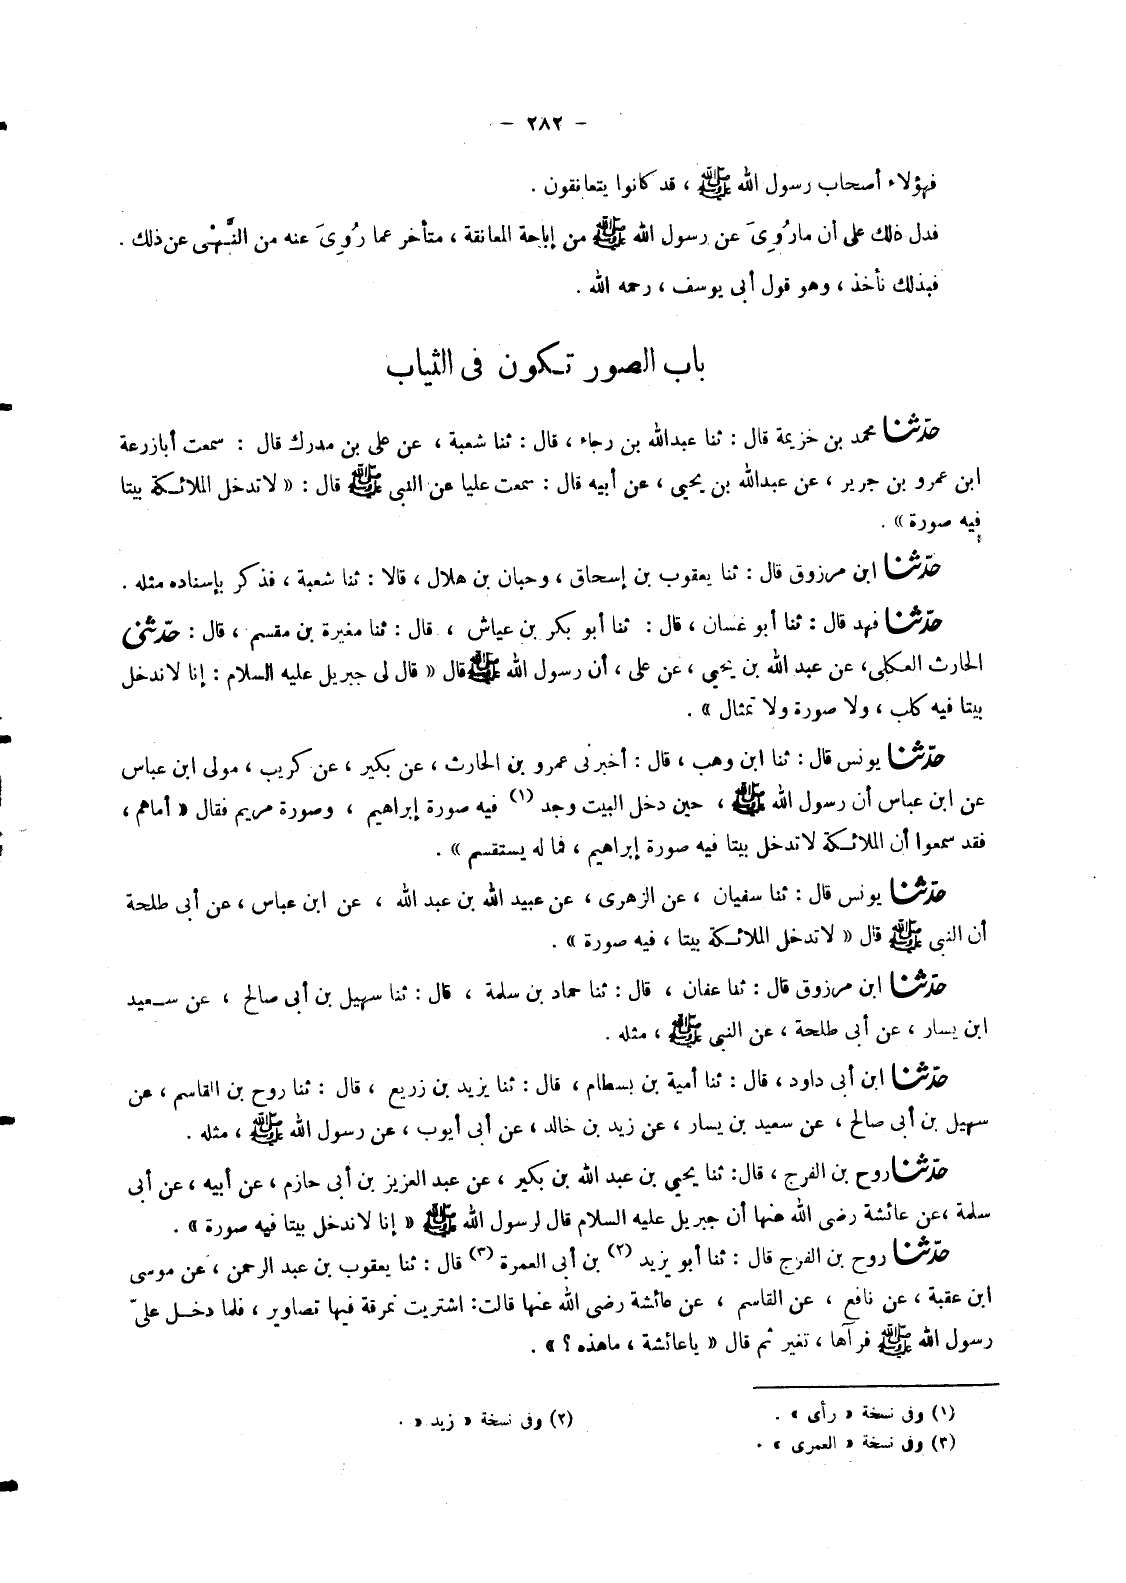 — ٢٨٢ —
فهؤلاء أصحاب رسول الله ﷺ ، قد كانوا يتعانقون .
فدل ذلك على أن ما رُوِىَ عن رسول الله ﷺ من إباحة المعانقة ، متأخر عما رُوِىَ عنه من النَّهْى عن ذلك .
فبذلك نأخذ ، وهو قول أبى يوسف ، رحمه الله .
باب الصور تـكون فى الثياب
حدّثنا محمد بن خزيمة قال : ثنا عبدالله بن رجاء ، قال : ثنا شعبة ، عن على بن مدرك قال : سمعت أبازرعة
ابن عمرو بن جرير ، عن عبدالله بن يحيى ، عن أبيه قال : سمعت عليا عن النبى ﷺ قال : « لاتدخل الملائـكة بيتا
فيه صورة » .
حدّثنا ابن مرزوق قال : ثنا يعقوب بن إسحاق ، وحبان بن هلال ، قالا : ثنا شعبة ، فذكر بإسناده مثله .
حدّثنا فهد قال : ثنا أبو غسان ، قال : ثنا أبو بكر بن عياش ، قال : ثنا مغيرة بن مقسم ، قال : حدّثنى
الحارث العـكلى، عن عبد الله بن يحيي ، عن على ، أن رسول الله ﷺ قال « قال لى جبريل عليه السلام : إنا لاندخل
بيتا فيه كلب ، ولا صورة ولا تمثال » .
حدّثنا يونس قال : ثنا ابن وهب ، قال : أخبرنى عمرو بن الحارث ، عن بكير ، عن كريب ، مولى ابن عباس
عن ابن عباس أن رسول الله ﷺ ، حين دخل البيت وجد (١) فيه صورة إبراهيم ، وصورة مريم فقال « أماهم ،
فقد سمعوا أن الملائـكة لاتدخل بيتا فيه صورة إبراهيم ، فما له يستقسم » .
حدّثنا يونس قال : ثنا سفيان ، عن الزهرى ، عن عبيد الله بن عبد الله ، عن ابن عباس ، عن أبى طلحة
أن النبى ﷺ قال « لاتدخل الملائـكة بيتا ، فيه صورة » .
حدّثنا ابن مرزوق قال : ثنا عفان ، قال : ثنا حماد بن سلمة ، قال : ثنا سهيل بن أبى صالح ، عن سـعيد
ابن يسار ، عن أبى طلحة ، عن النبى ﷺ ، مثله .
حدّثنا ابن أبى داود ، قال : ثنا أمية بن بسطام ، قال : ثنا يزيد بن زريع ، قال : ثنا روح بن القاسم ، عن
سهيل بن أبى صالح ، عن سعيد بن يسار ، عن زيد بن خالد ، عن أبى أيوب ، عن رسول الله ﷺ ، مثله .
حدّثنا روح بن الفرج ، قال: ثنا يحيي بن عبد الله بن بكير ، عن عبد العزيز بن أبى حازم ، عن أبيه ، عن أبى
سلمة ،عن عائشة رضى الله عنها أن جبريل عليه السلام قال لرسول الله ﷺ « إنا لاندخل بيتا فيه صورة » .
حدّثنا روح بن الفرج قال : ثنا أبو يزيد (٢) بن أبى العمرة (٣) قال : ثنا يعقوب بن عبد الرحمن ، عن موسى
ابن عقبة ، عن نافع ، عن القاسم ، عن عائشة رضى الله عنها قالت: اشتريت نمرقة فيها تصاوير ، فلما دخـل علىّ
رسول الله ﷺ فرآها ، تغير ثم قال « ياعائشة ، ماهذه ؟ » .
(١) وفى نسخة « رأى » .
(٢) وفى نسخة « زيد » .
(٣) وفى نسخة « العمرى » .